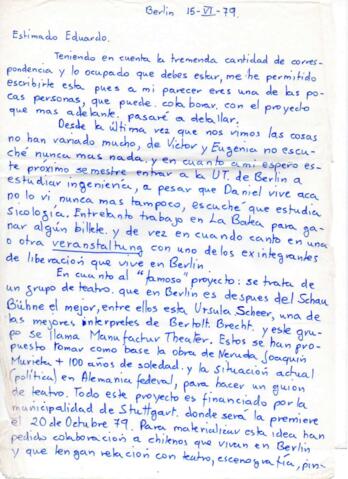 Berlin 15-VI-79.
Estimado Eduardo.
Teniendo en cuenta la tremenda cantidad de corres-
pondencia y lo ocupado que debes estar, me he permitido
escribirte esta pues a mi parecer eres una de las po-
cas personas, que puede colaborar con el proyecto
que mas adelante pasaré a detallar.
Desde la última vez que nos vimos las cosas
no han variado mucho, de Víctor y Eugenia no escu-
ché nunca mas nada. y en cuanto a mi espero es-
te proximo semestre entrar a la UT. de Berlin a
estudiar ingenieria, a pesar que Daniel vive aca
no lo vi nunca mas tampoco, escuché que estudia
Sicologia. Entretanto trabajo en La Batea para ga-
nar algún billete. y de vez en cuando canto en una
o otra veranstaltung con uno de los exintegrantes
de liberación que vive en Berlin.
En cuanto al "famoso" proyecto: se trata de
un grupo de teatro. que en Berlin es despues del Schau
Bühne el mejor, entre ellos esta Ursula Scheer, una de
las mejores interpretes de Bertolt. Brecht. y este gru-
po se llama Manufactur Theater. Estos se han pro-
puesto tomar como base la obra de Neruda Joaquin
Murieta + 100 años de soledad. y la situación actual
(politica) en Alemania federal, para hacer un guion
de teatro. Todo este proyecto es financiado por la
municipalidad de Stuttgart. donde será la premiere
el 20 de Octubre 79. Para materializar esta idea han
pedido colaboración a chilenos que vivan en Berlin
y que tengan relación con teatro, escenografía, pin-